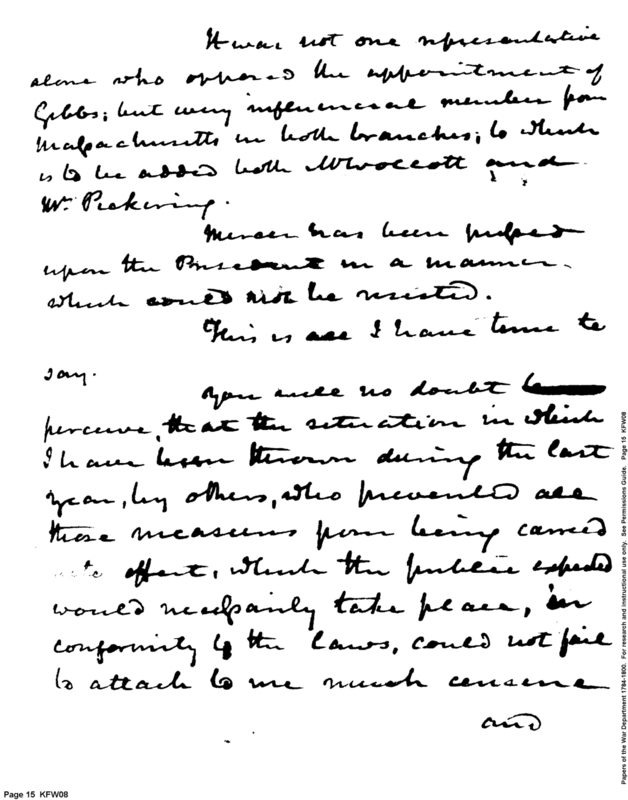 It was not one representative
alone who opposed the appointment of
Gibbs; but every influencial member from
Massachusetts in both branches; to which
is to be added both Mr Wolcott and
Mr. Pickering.
Mercer has been pressed
upon the President in a manner
which could not be resisted.
This is all I have time to
say.
You will no doubt
perceive, that the situation in which
I have been thrown during the last
year, by others, who prevented all
those measures from being carried
into effect, which the public expected
would necessarily take place, in
conformity to the laws, could not fail
to attach to me much censure
and
Page 15 KFW08
Papers of the War Department 1784-1800. For research and instructional use only. See Permissions Guide. Page 15 KFW08